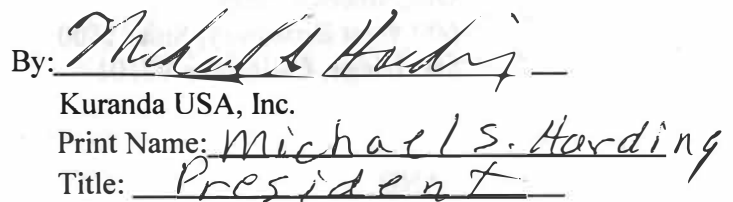 By: Michael S Harding
Kuranda USA, Inc.
Print Name: Michael S. Harding
Title: President